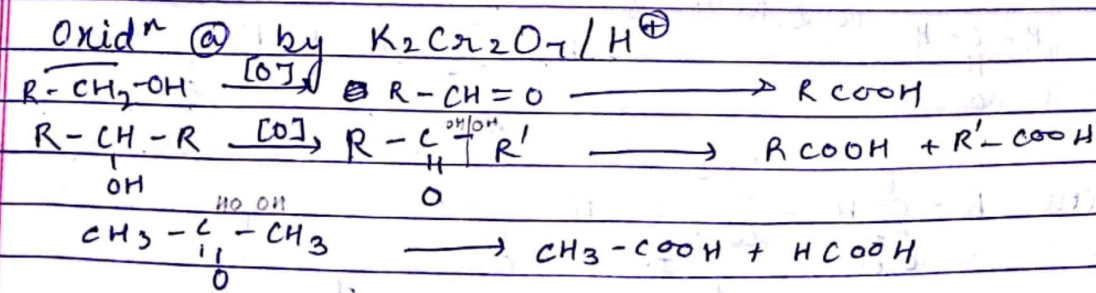 Oxidⁿ ⓐ by K2Cr2O7/H⊕
R-CH2-OH [O]→ R-CH=O → RCOOH
R-CH-R [O]→ R-C OH|OH R' → RCOOH + R'-COOH
OH O
HO OH
CH3-C-CH3 → CH3-COOH + HCOOH
O